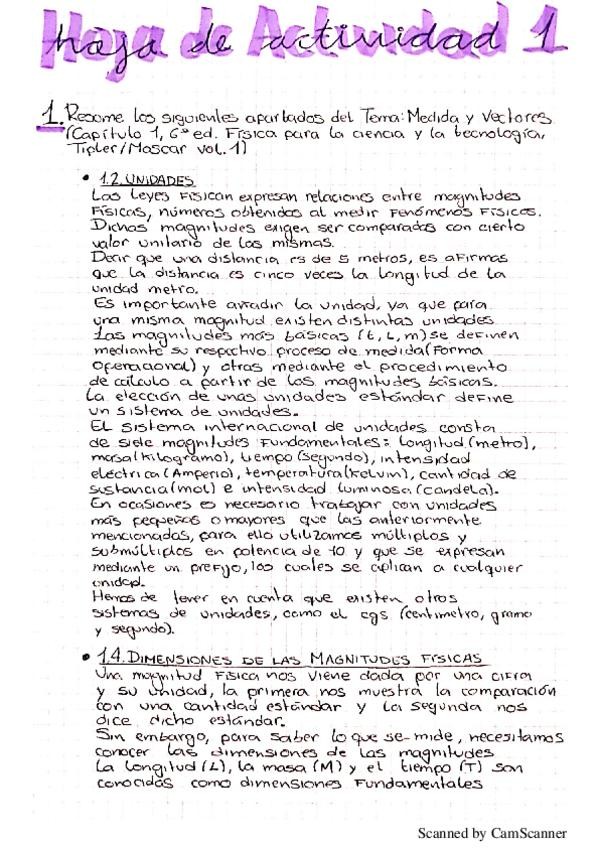 Hoja de actividad 1
1. Resume los siguientes apartados del Tema: Medida y Vectores
(Capítulo 1, 6ª ed. Física para la ciencia y la tecnología,
Tipler/Moscar vol. 1)
• 1.2. UNIDADES
Las Leyes Físican expresan relaciones entre magnitudes
Físicas, números obtenidos al medir Fenómenos Físicos.
Dichas magnitudes exigen ser comparadas con cierto
valor unitario de las mismas.
Decir que una distancia es de 5 metros, es afirmas
que la distancia es cinco veces la longitud de la
unidad metro.
Es importante añadir la unidad, ya que para
una misma magnitud existen distintas unidades
Las magnitudes más básicas (t, L, m) se definen
mediante su respectivo proceso de medida (Forma
operacional) y otras mediante el procedimiento
de cálculo a partir de las magnitudes básicas.
La elección de unas unidades estándar define
un sistema de unidades.
El sistema internacional de unidades consta
de siete magnitudes Fundamentales: longitud (metro),
masa (kilogramo), tiempo (segundo), intensidad
eléctrica (Amperio), temperatura (Kelvin), cantidad de
sustancia (mol) e intensidad luminosa (candela).
En ocasiones es necesario trabajar con unidades
más pequeñas o mayores que las anteriormente
mencionadas, para ello utilizamos múltiplos y
submúltiplos en potencia de 10 y que se expresan
mediante un prefijo, los cuales se aplican a cualquier
unidad.
Hemos de tener en cuenta que existen otros
sistemas de unidades, como el cgs (centímetro, gramo
y segundo).
• 1.4. DIMENSIONES DE LAS MAGNITUDES FÍSICAS
Una magnitud Física nos viene dada por una cifra
y su unidad, la primera nos muestra la comparación
con una cantidad estándar y la segunda nos
dice dicho estándar.
Sin embargo, para saber lo que se mide, necesitamos
conocer las dimensiones de las magnitudes
La longitud (L), la masa (M) y el tiempo (T) son
conocidas como dimensiones Fundamentales
Scanned by CamScanner